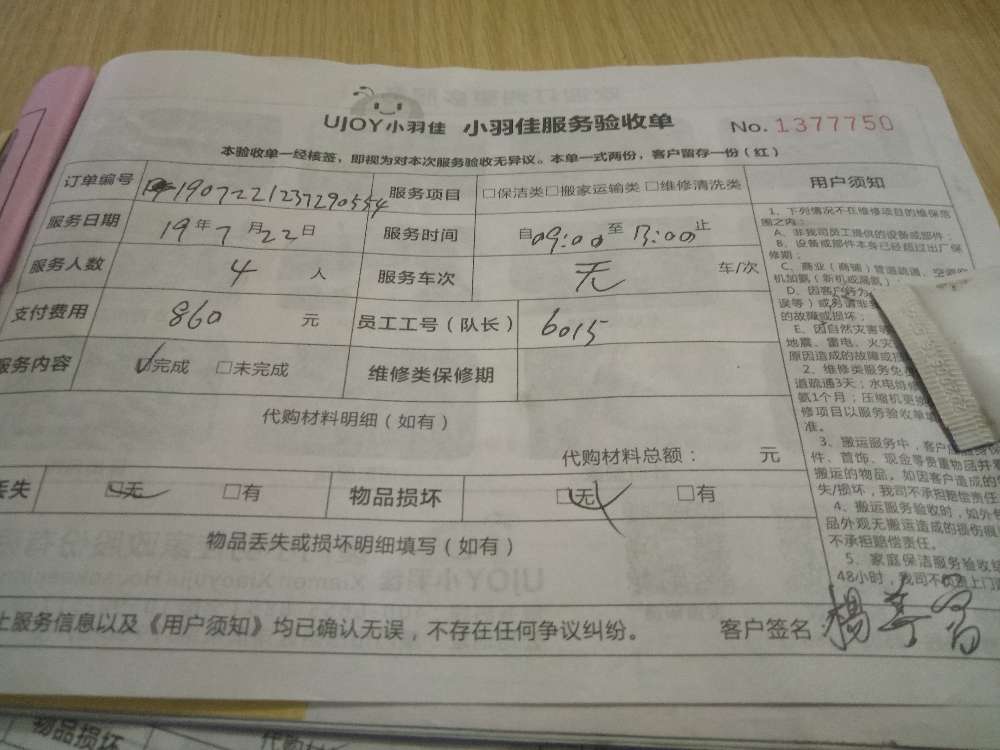 UJOY小羽佳 小羽佳服务验收单 No. 1377750
本验收单一经核签，即视为对本次服务验收无异议。本单一式两份，客户留存一份（红）
订单编号 1907221237290554 服务项目 □保洁类□搬家运输类□维修清洗类
服务日期 19年7月22日 服务时间 自09:00至13:00止
服务人数 4人 服务车次 无 车/次
支付费用 860 元 员工工号（队长） 6015
服务内容 ☑完成 □未完成 维修类保修期
代购材料明细（如有）
代购材料总额： 元
丢失 ☑无 □有 物品损坏 ☑无 □有
物品丢失或损坏明细填写（如有）
上服务信息以及《用户须知》均已确认无误，不存在任何争议纠纷。 客户签名
用户须知
1、下列情况不在维修项目的维保范
围之内：
A、非我司员工提供的设备或部件；
B、设备或部件本身已经超过出厂保
修期；
C、商业（商铺）管道疏通、空调
机加氨（新机或漏氨）
D、因客户行为
误等）或另请非
的故障或损坏；
E、因自然灾害等
地震、雷电、火灾
原因造成的故障或损
2、维修类服务免费
道疏通3天；水电维修
氨1个月；压缩机更
修项目以服务验收单
准。
3、搬运服务中，客户
件、首饰、现金等贵重物品并
搬运的物品，如因客户造成的
失/损坏，我司不承担赔偿责任
4、搬运服务验收时，如外包
品外观无搬运造成的损伤痕
不承担赔偿责任。
5、家庭保洁服务验收
48小时，我司不负责上门
物品损坏 代购材